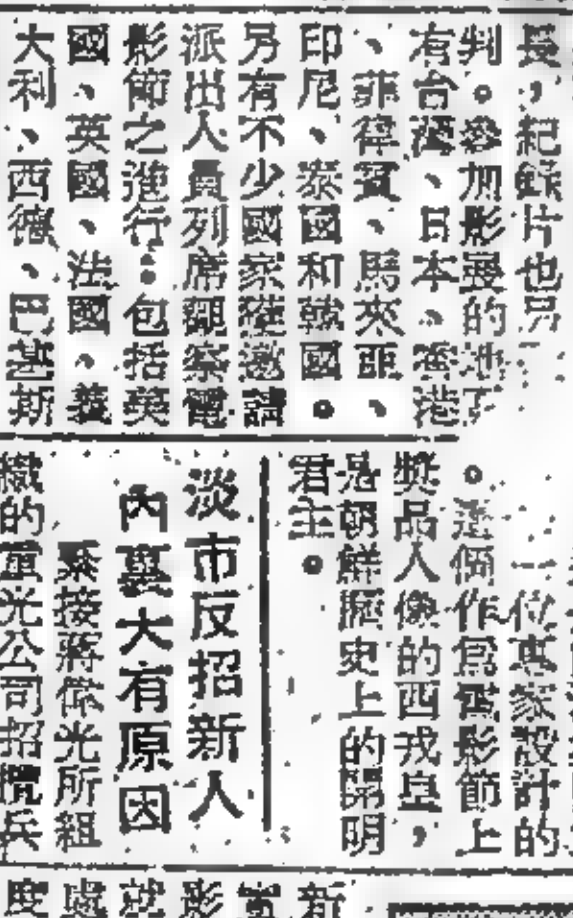 長，紀錄片也另
判。參加影展的地
有台灣、日本、香港
、菲律賓、馬來亞、
印尼、泰國和韓國。
另有不少國家應邀請
派出人員列席觀察電
影節之進行：包括英
國、英國、法國、義
大利、西德、巴基斯
一位專家設計的
。這個作為電影節上
獎品人像的西戎皇，
是朝鮮歷史上的開明
君主。
淡市反招新人
內裏大有原因
緊接蔣傑光所組
織的重光公司招攬兵
新
影
就
處
度